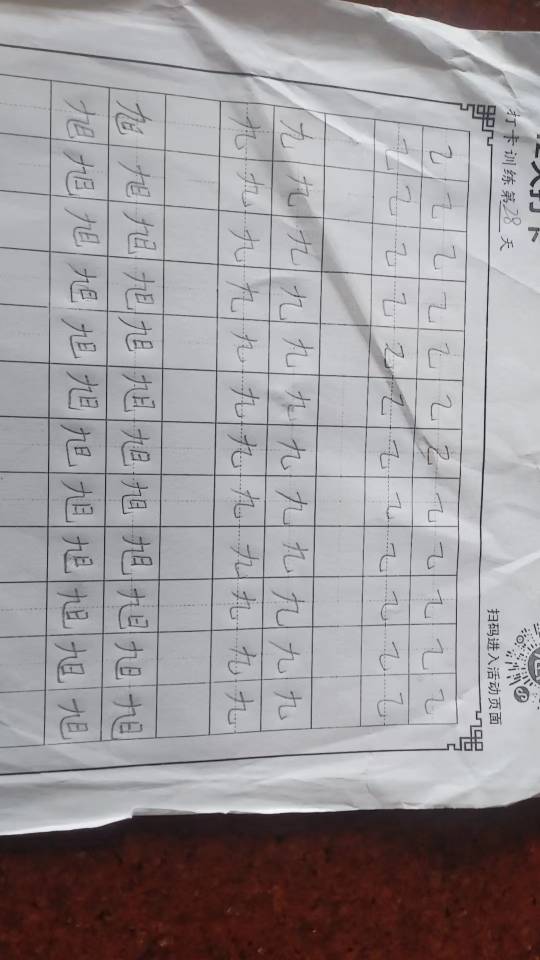 打卡
打卡训练第28天
扫码进入活动页面
乙乙乙乙乙乙乙乙乙乙乙乙
乙乙乙乙乙乙乙乙乙乙乙乙
九九九九九九九九九九九九
九九九九九九九九九九九九
旭旭旭旭旭旭旭旭旭旭旭旭
旭旭旭旭旭旭旭旭旭旭旭旭